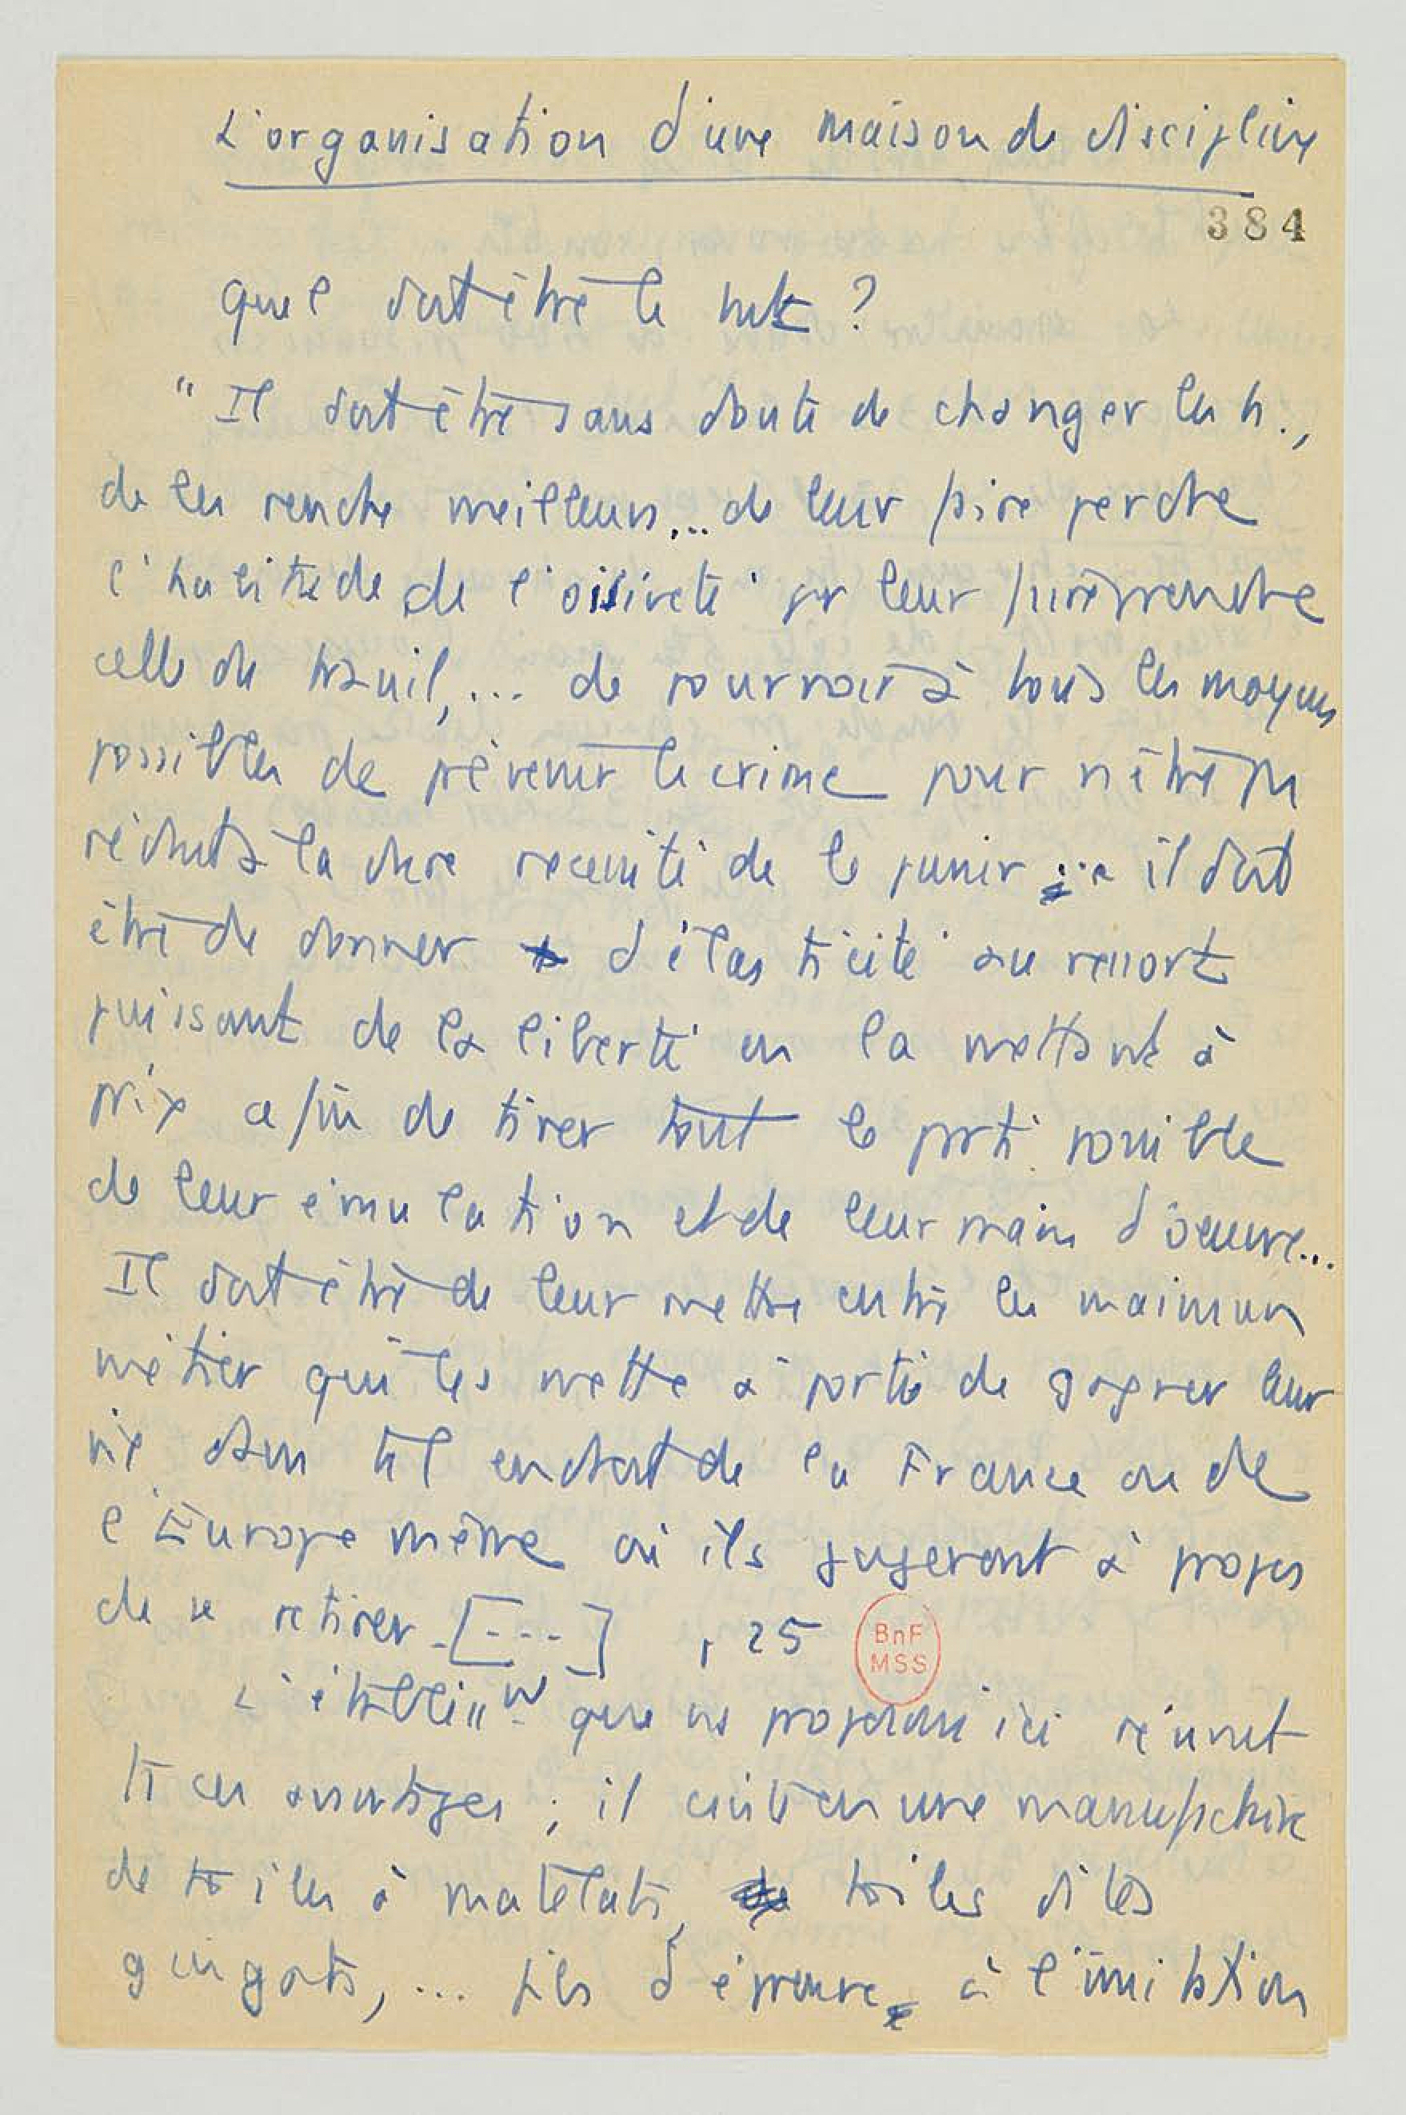 L'organisation d'une maison de discipline
384
quel doit être le but ?
" Il doit être sans doute de changer les h.,
de les rendre meilleurs... de leur faire perdre
l'habitude de l'oisiveté pr leur faire prendre
celle du travail,... de pourvoir à tous les moyens
possibles de prévenir le crime pour n'être pas
réduits à la dure nécessité de le punir ... il doit
être de donner d'élasticité au ressort
puissant de la liberté en la mettant à
prix afin de tirer tout le parti possible
de leur émulation et de leur main d'oeuvre...
Il doit être de leur mettre entre les mains un
métier qui les mette à portée de gagner leur
vie dans tel endroit de la France ou de
l'Europe même où ils jugeront à propos
de se retirer [---] , 25
BnF
MSS
L'établisst que ns proposons ici réunit
ts ces avantages ; il existe en une manufacture
de toiles à matelats, toiles dites
gingats, ... fils d'épreuve, à l'imitation